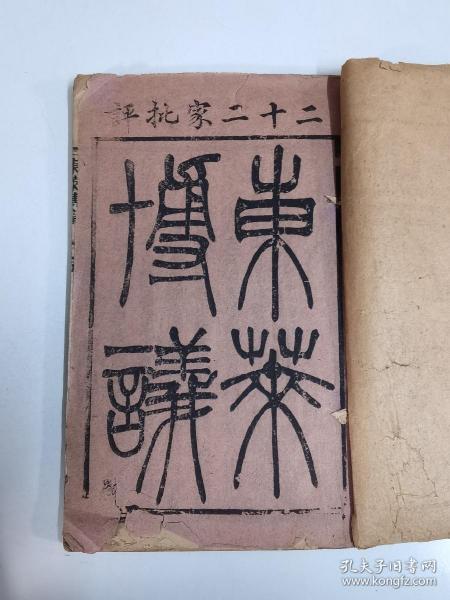 二十二家批評
東萊
博議
孔夫子旧书网
www.kongfz.com